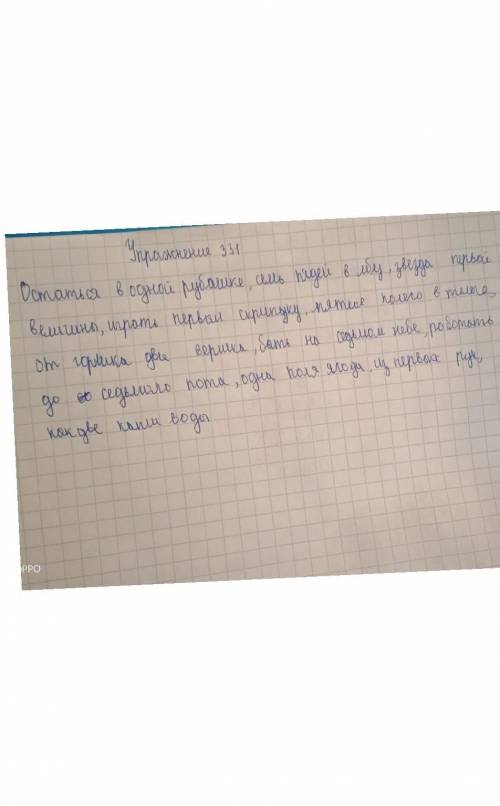 Упражнение 331
Остаться в одной рубашке, семь пядей в лбу, звезда первой
величины, играть первый скрипку, пятое колесо в телеге,
от горшка два вершка, быть на седьмом небе, работать
до седьмого пота, одна поля ягода, из первых рук,
как две капли воды
OPPO